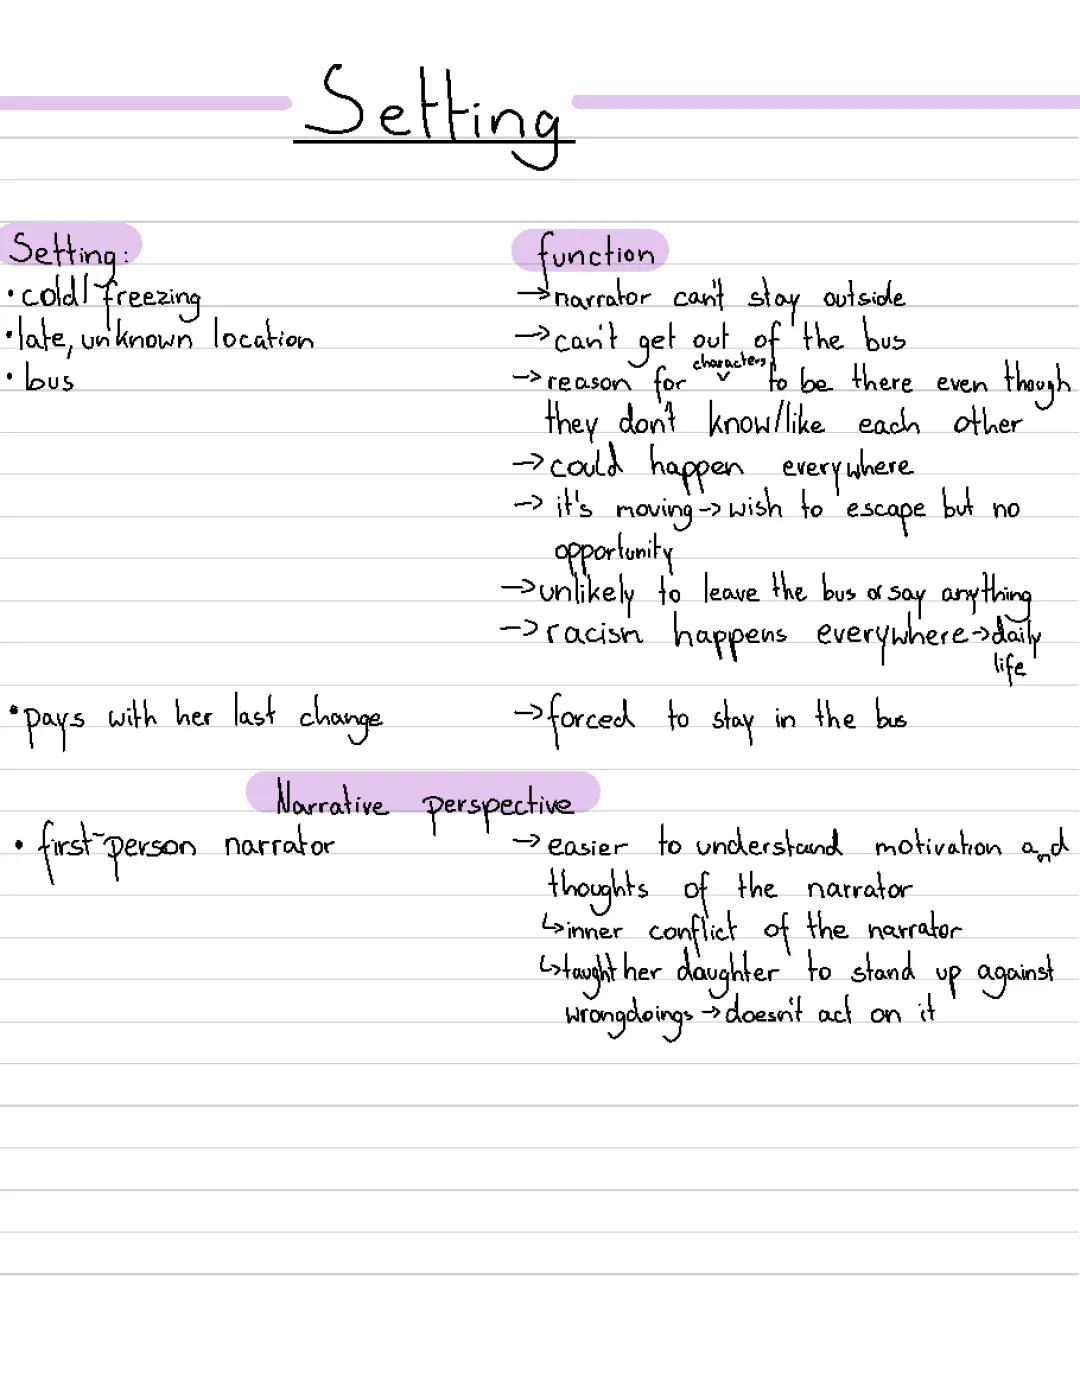 Setting
Setting: function
• cold/ freezing → narrator can't stay outside
• late, unknown location → can't get out of the bus
• bus → reason for characters to be there even though
they don't know/like each other
→ could happen everywhere
→ it's moving → wish to escape but no
opportunity
→ unlikely to leave the bus or say anything
→ racism happens everywhere → daily
life
• pays with her last change → forced to stay in the bus
Narrative perspective
• first-person narrator → easier to understand motivation and
thoughts of the narrator
↳ inner conflict of the narrator
↳ taught her daughter to stand up against
wrongdoings → doesn't act on it